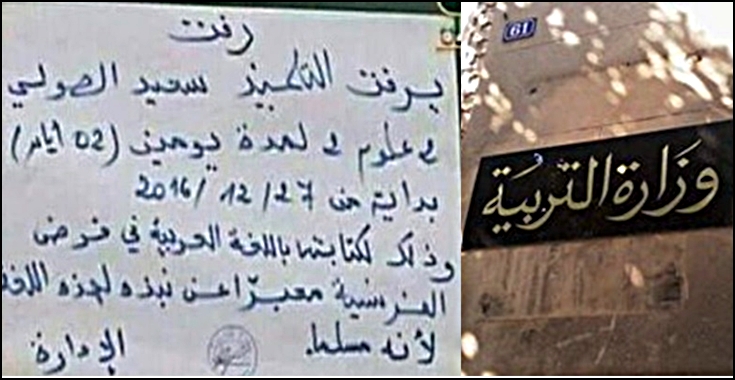 رفت
يرفت التلميذ سعيد الصولي
3 علوم 3 لمدة يومين (02 أيام)
بداية من 27/ 12/ 2016
وذلك لكتابته باللغة العربية في فرض
الفرنسية معبرا عن نبذه لهذه اللغة
لأنه مسلما.
الإدارة
61
وزارة التربية